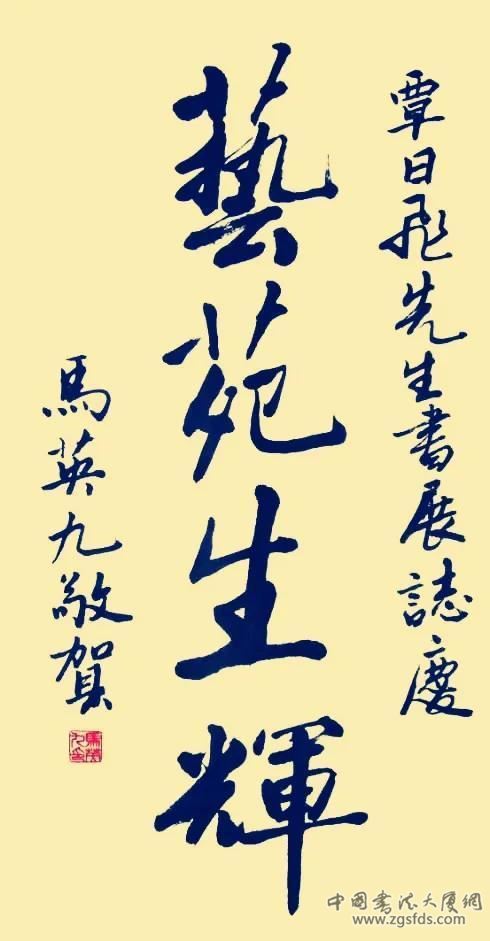 覃日飛先生書展誌慶
藝苑生輝
馬英九敬賀
中国书法大厦網
www.zgsfds.com